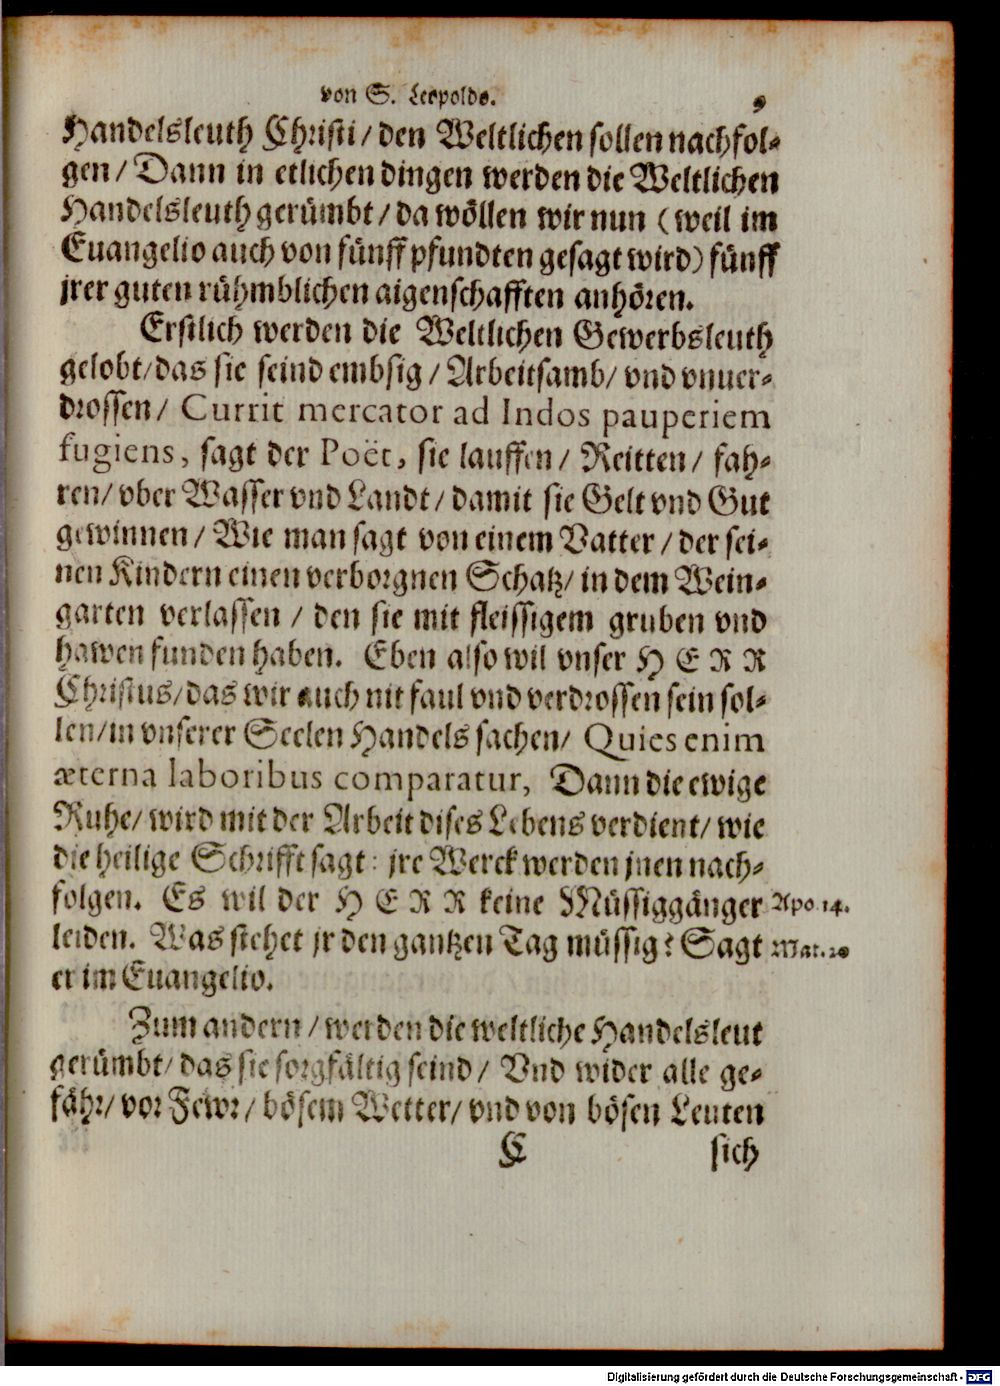 von S. Leopoldo. 9
Handelsleuth Christi / den Weltlichen sollen nachfol-
gen / Dann in etlichen dingen werden die Weltlichen
Handelsleuth gerümbt / da wöllen wir nun (weil im
Euangelio auch von fünff pfundten gesagt wird) fünff
jrer guten rühmblichen aigenschafften anhören.
Erstlich werden die Weltlichen Gewerbsleuth
gelobt / das sie seind embsig / Arbeitsamb / vnd vnuer-
drossen / Currit mercator ad Indos pauperiem
fugiens, sagt der Poët, sie lauffen / Reitten / fah-
ren / vber Wasser vnd Landt / damit sie Gelt vnd Gut
gewinnen / Wie man sagt von einem Vatter / der sei-
nen Kindern einen verborgnen Schatz / in dem Wein-
garten verlassen / den sie mit fleissigem gruben vnd
hawen funden haben. Eben also wil vnser HERR
Christus / das wir auch nit faul vnd verdrossen sein sol-
len / in vnserer Seelen Handels sachen / Quies enim
æterna laboribus comparatur, Dann die ewige
Ruhe / wird mit der Arbeit dises Lebens verdient / wie
die heilige Schrifft sagt: jre Werck werden jnen nach-
folgen. Es wil der HERR keine Müssiggänger Apo. 14.
leiden. Was stehet jr den gantzen Tag müssig? Sagt Mat. 20
er im Euangelio.
Zum andern / werden die weltliche Handelsleut
gerümbt / das sie sorgfältig seind / Vnd wider alle ge-
fähr / vor Fewr / bösem Wetter / vnd von bösen Leuten
C sich
Digitalisierung gefördert durch die Deutsche Forschungsgemeinschaft - DFG